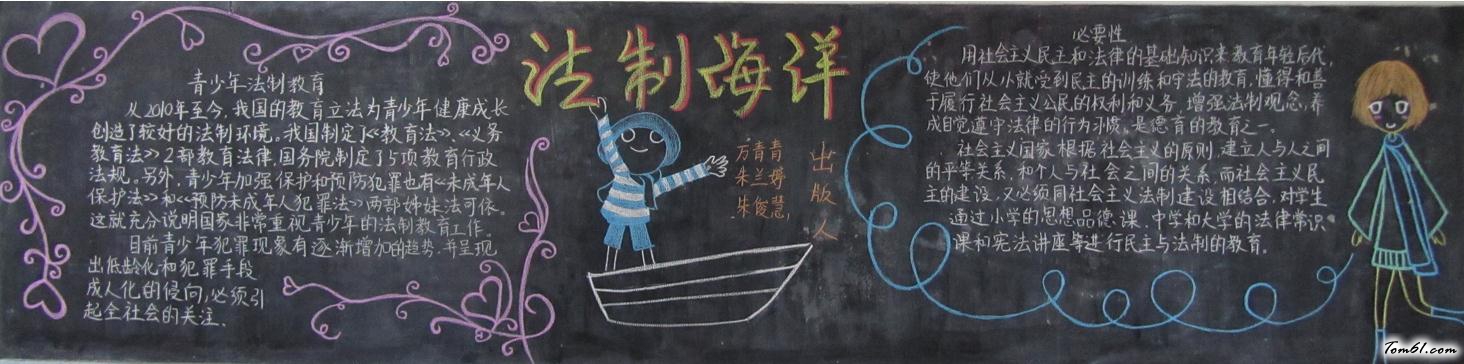 青少年法制教育
从2010年至今,我国的教育立法为青少年健康成长
创造了较好的法制环境。我国制定了《教育法》、《义务
教育法》2部教育法律,国务院制定了5项教育行政
法规。另外,青少年加强保护和预防犯罪也有《未成年人
保护法》和《预防未成年人犯罪法》两部姊妹法可依。
这就充分说明国家非常重视青少年的法制教育工作。
目前青少年犯罪现象有逐渐增加的趋势,并呈现
出低龄化和犯罪手段
成人化的倾向,必须引
起全社会的关注.
法制海洋
出版人
万青青
朱兰婷
朱俊慧
必要性
用社会主义民主和法律的基础知识来教育年轻后代,
使他们从小就受到民主的训练和守法的教育,懂得和善
于履行社会主义公民的权利和义务,增强法制观念,养
成自觉遵守法律的行为习惯,是德育的教育之一。
社会主义国家根据社会主义的原则,建立人与人之间
的平等关系,和个人与社会之间的关系,而社会主义民
主的建设,又必须同社会主义法制建设相结合,对学生
通过小学的思想品德课,中学和大学的法律常识
课和宪法讲座等进行民主与法制的教育。
Tom61.com